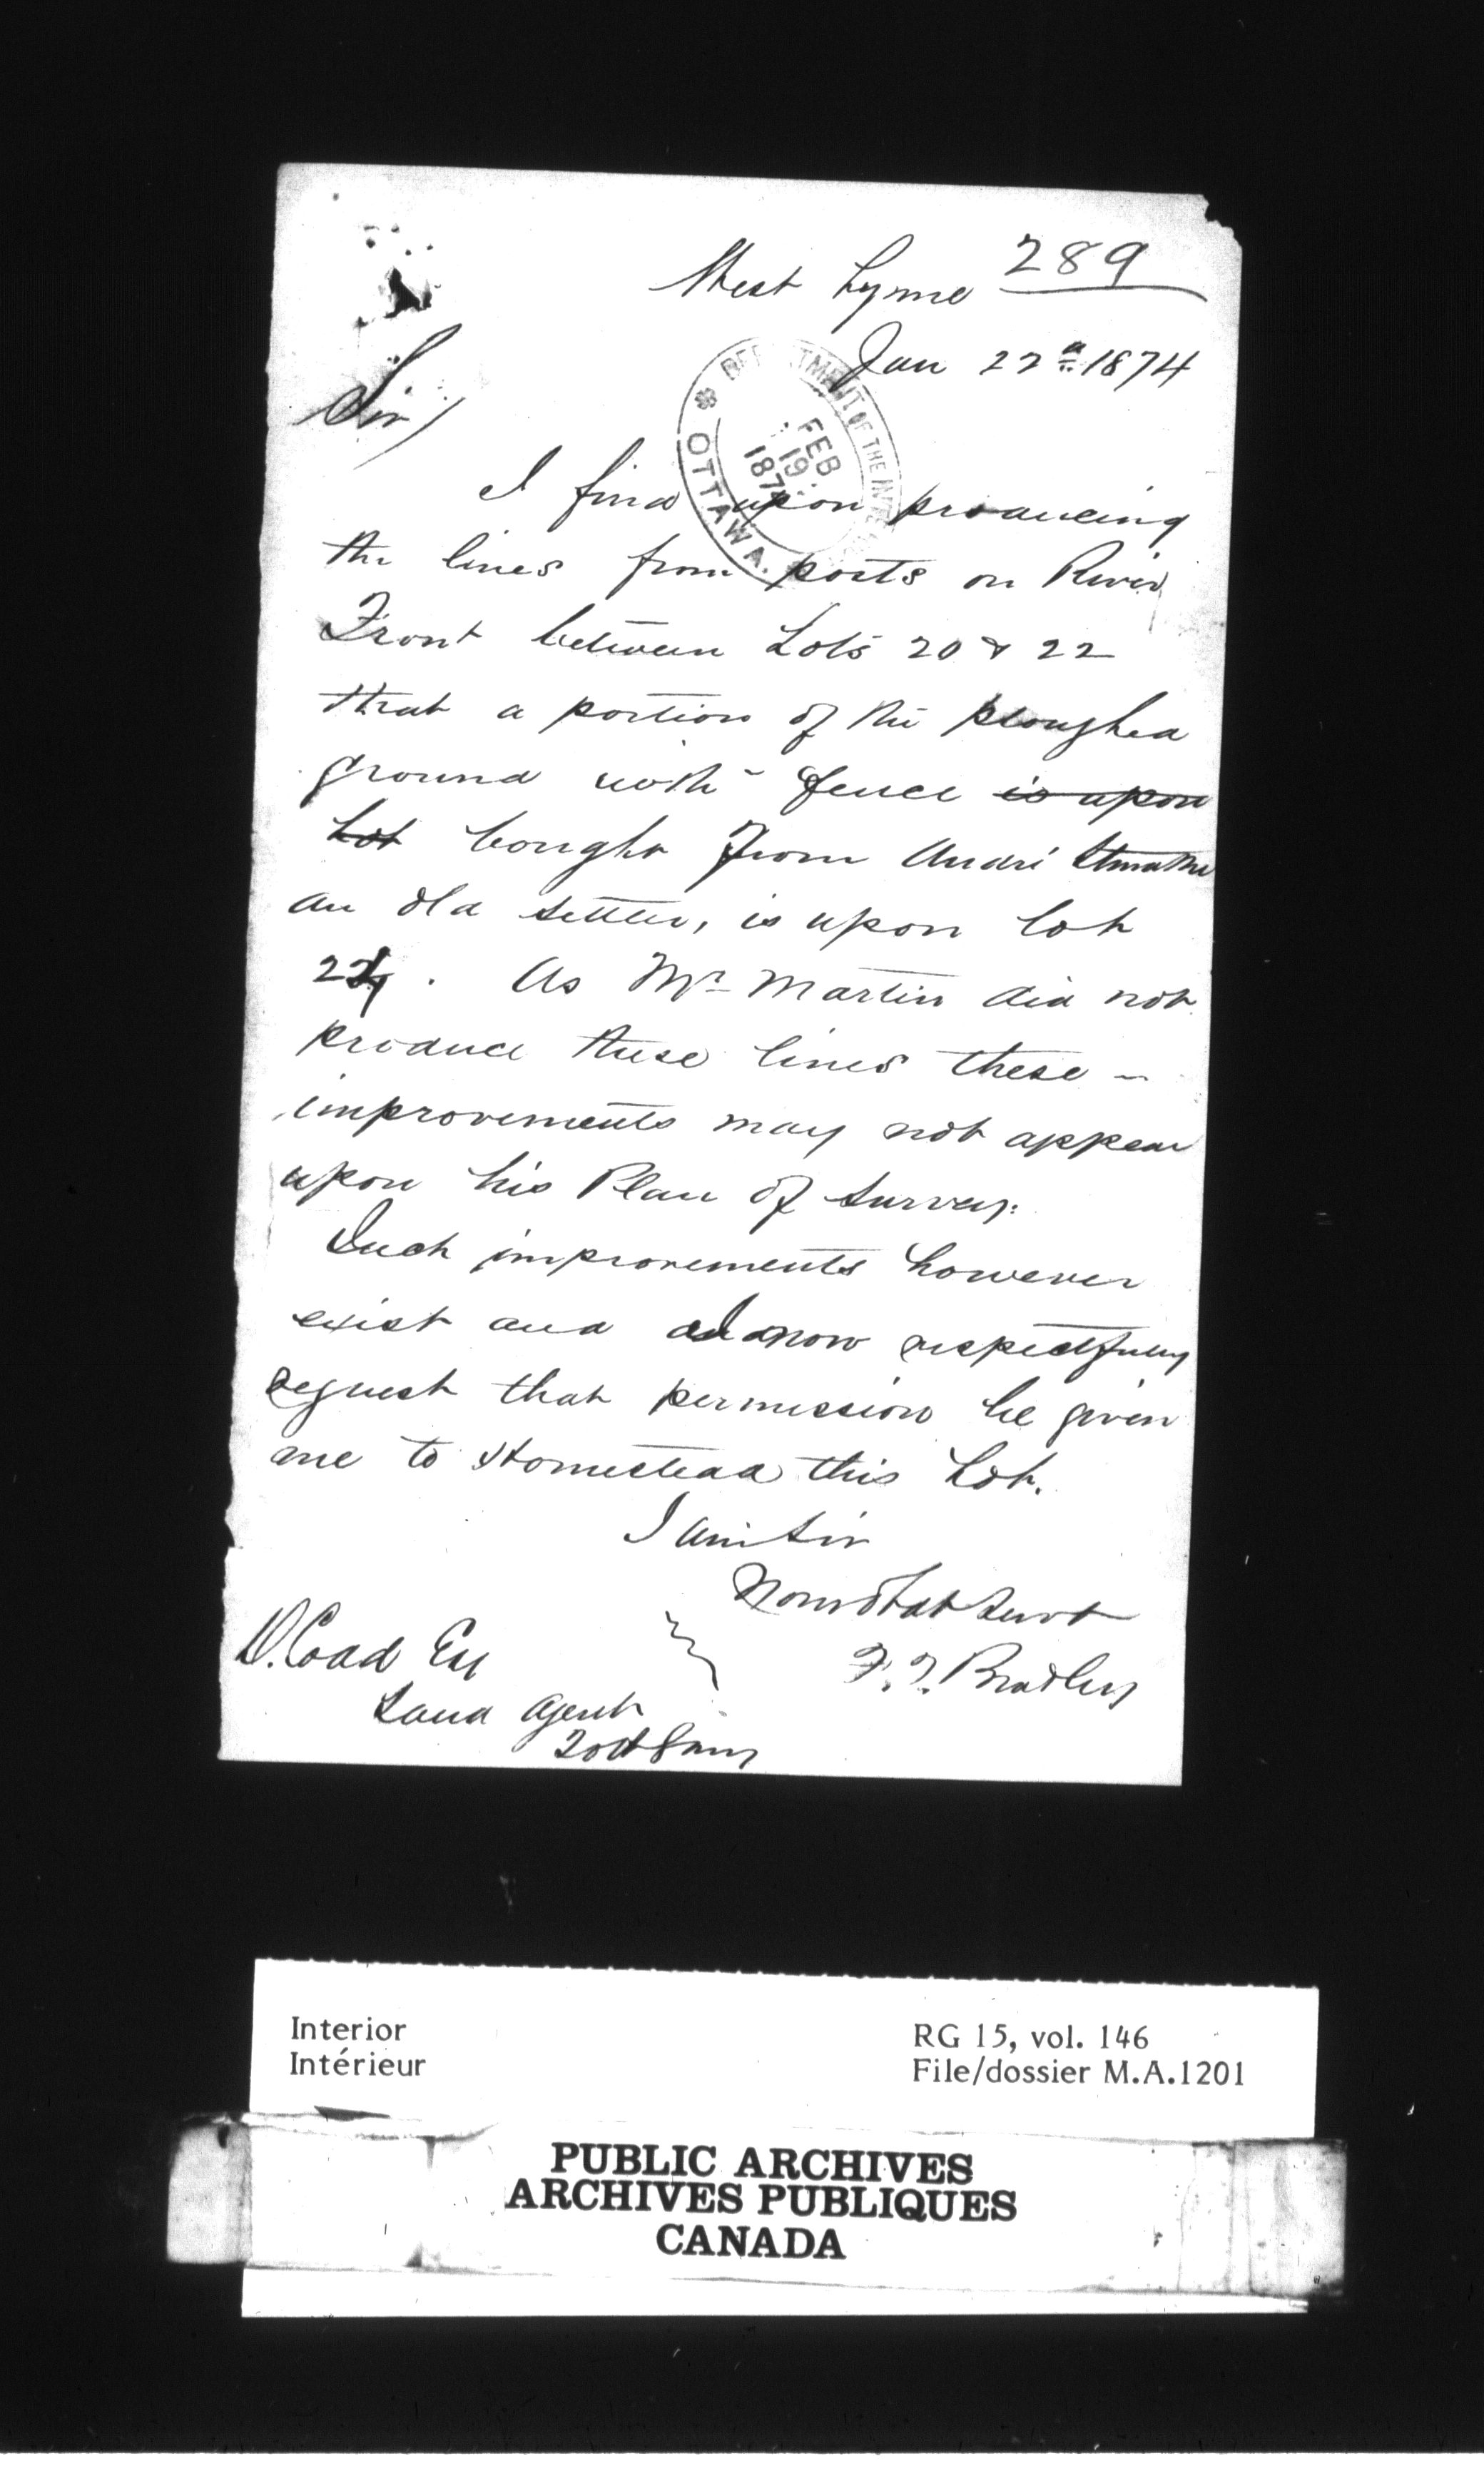 289
West Lynne
Jan 22d 1874
Sir/
DEPARTMENT OF THE INTE
OTTAWA.
FEB
19
187
I find upon producing
the lines from posts on River
Front between Lots 20 & 22
that a portion of the ploughed
ground with fence is upon
Lot bought from André
an old settler, is upon lot
22. As Mr Martin did not
produce these lines these -
improvements may not appear
upon his Plan of Survey:
Such improvements however
exist and I now respectfully
request that permission be given
me to Homestead this Lot.
I am Sir
Your Obt Servt
F. T. Bradley
D. Coad Esq
Land Agent
Interior
Intérieur
RG 15, vol. 146
File/dossier M.A.1201
PUBLIC ARCHIVES
ARCHIVES PUBLIQUES
CANADA